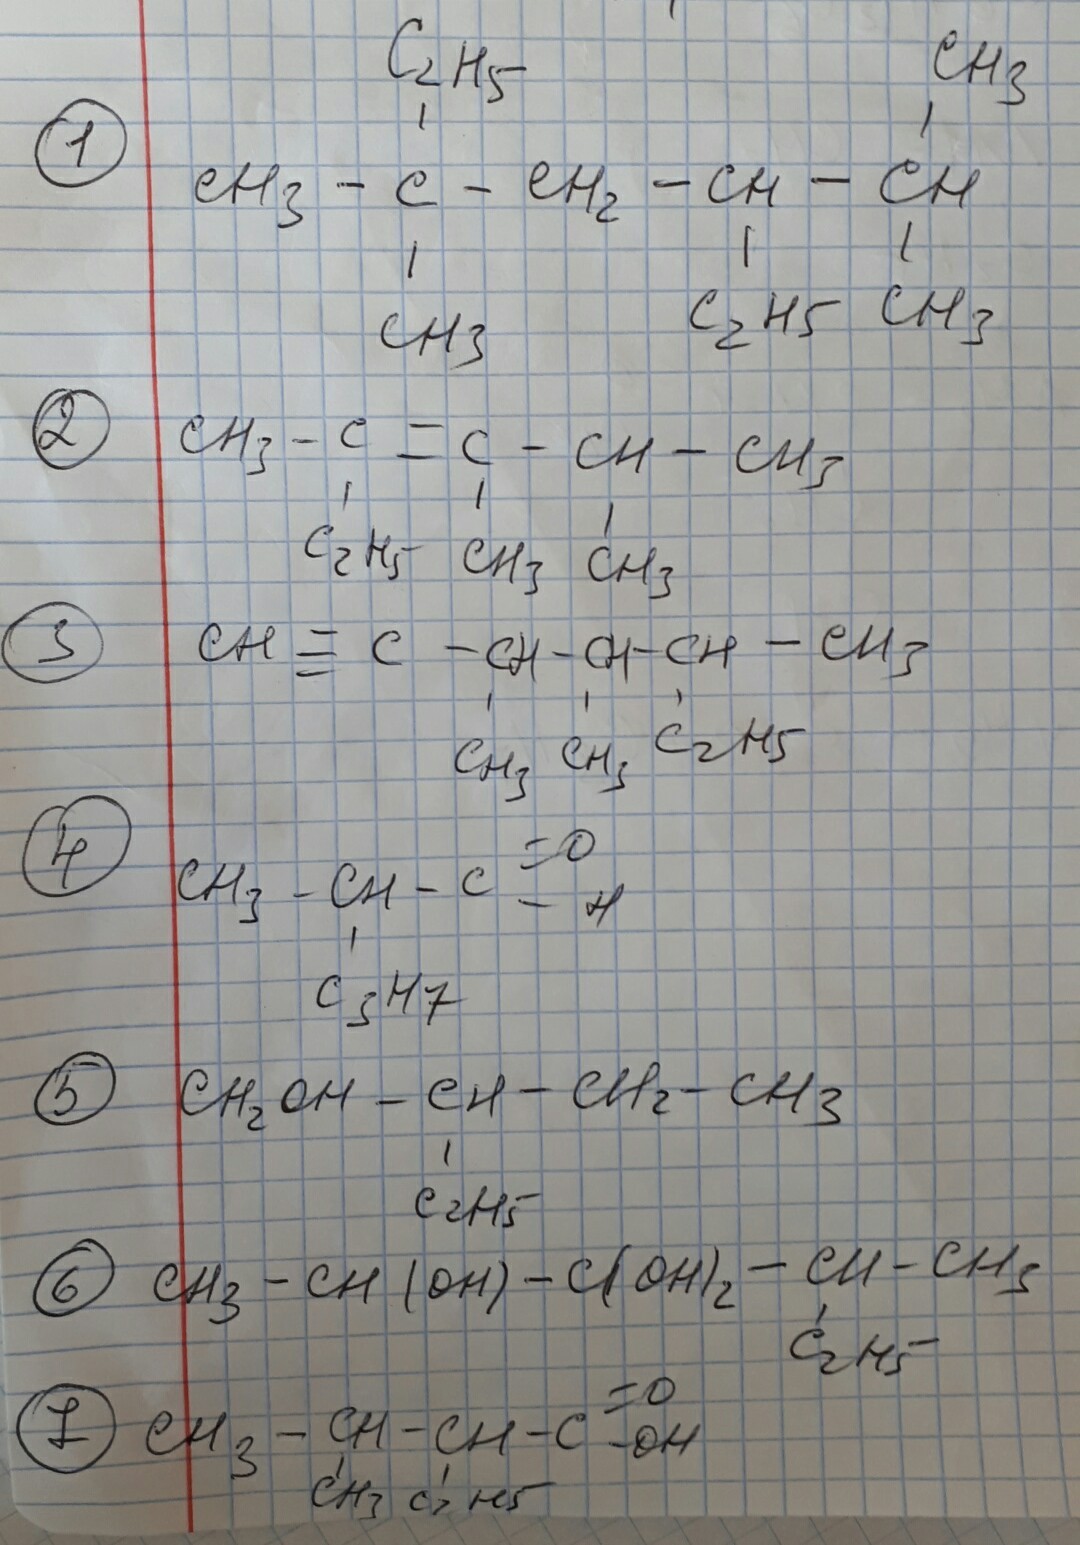 C₂H₅ CH₃
① CH₃ - C - CH₂ - CH - CH
CH₃ C₂H₅ CH₃
② CH₃ - C = C - CH - CH₃
C₂H₅ CH₃ CH₃
③ CH ≡ C - CH - CH - CH - CH₃
CH₃ CH₃ C₂H₅
=O
④ CH₃ - CH - C - H
C₃H₇
⑤ CH₂OH - CH - CH₂ - CH₃
C₂H₅
⑥ CH₃ - CH(OH) - C(OH)₂ - CH - CH₃
C₂H₅
=O
⑦ CH₃ - CH - CH - C -OH
CH₃ C₂H₅